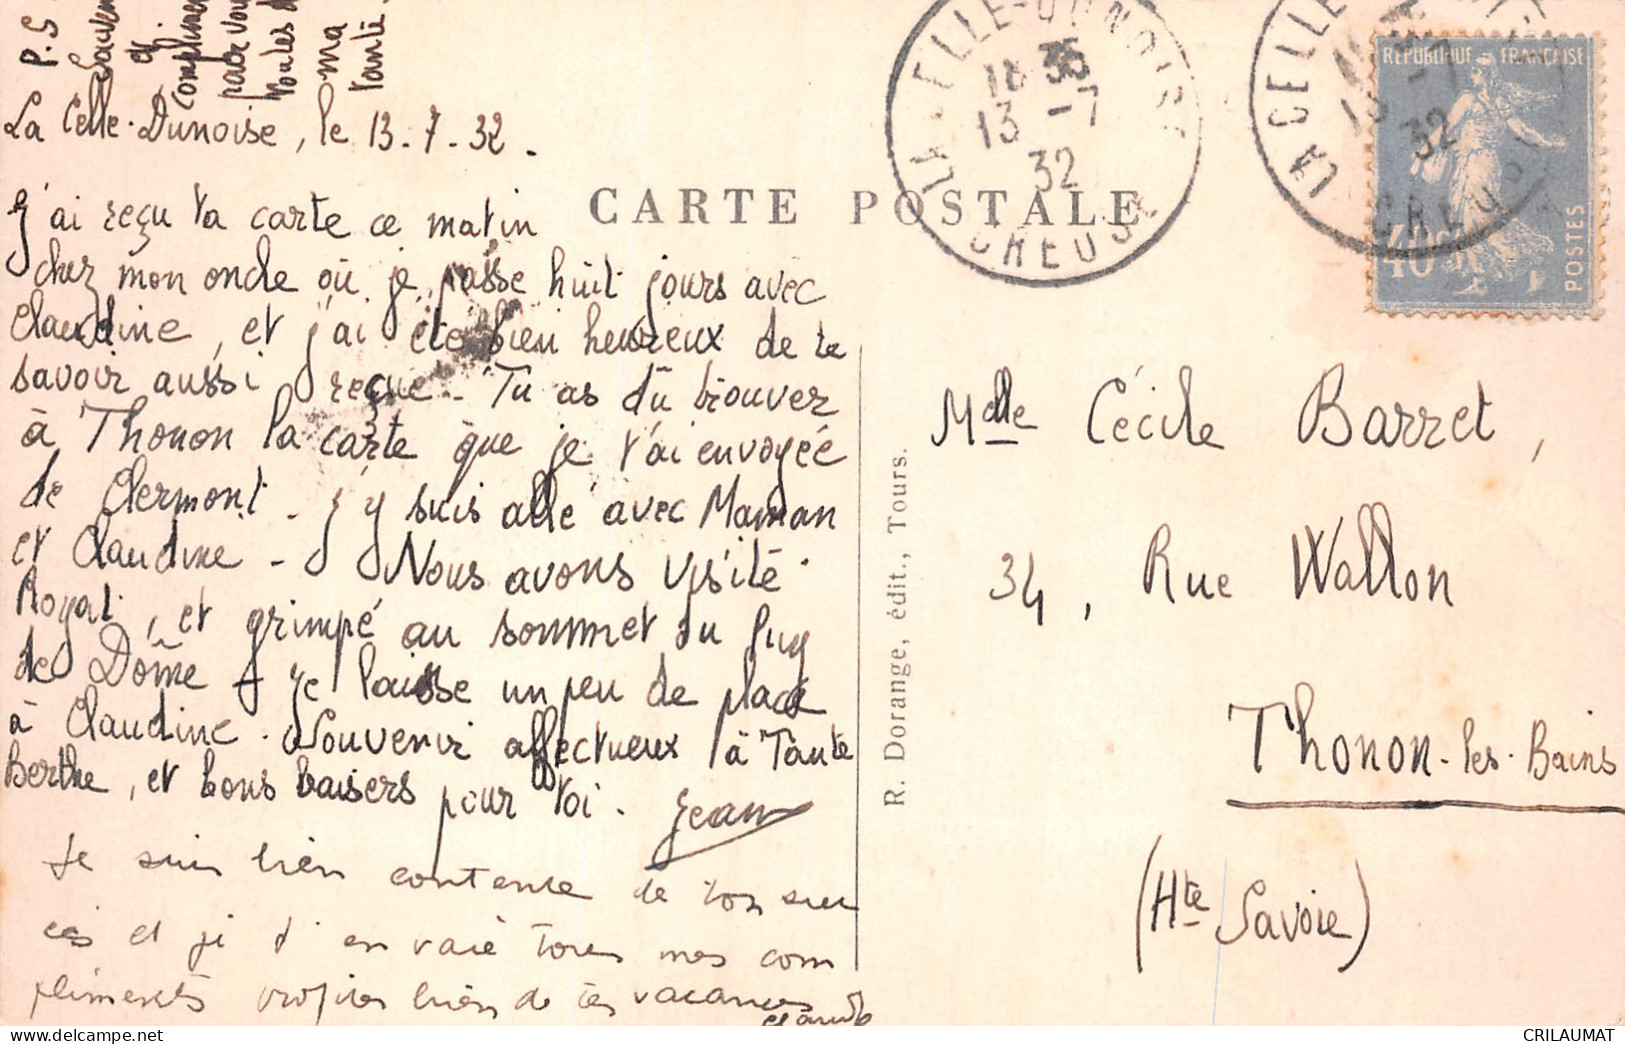 P.S
Souven
et
complimen
pour vou
toutes d
ma
santé.
La Celle-Dunoise, le 13-7-32-
J'ai reçu ta carte ce matin
chez mon oncle où je passe huit jours avec
Claudine, et j'ai été bien heureux de te
savoir aussi reçue. Tu as dû trouver
à Thonon la carte que je t'ai envoyée
de Clermont. J'y suis allé avec Maman
et Claudine - Nous avons visité
Royat, et grimpé au sommet du Puy
de Dôme - Je laisse un peu de place
à Claudine. Souvenir affectueux à Tante
Berthe, et bons baisers pour toi. Jean
Je suis bien contente de ton suc
cès et je t'en vaie tous mes com
pliments profites bien de tes vacances
Claudine
CARTE POSTALE
R. Dorange, édit., Tours.
LA CELLE-DUNOISE
18 35
13 -7
32
CREUSE
LA CELLE
13 -7
32
CREUSE
REPUBLIQUE FRANÇAISE
40c
POSTES
Melle Cécile Barret,
34, Rue Wallon
Thonon-les-Bains
(Hte Savoie)
CRILAUMAT